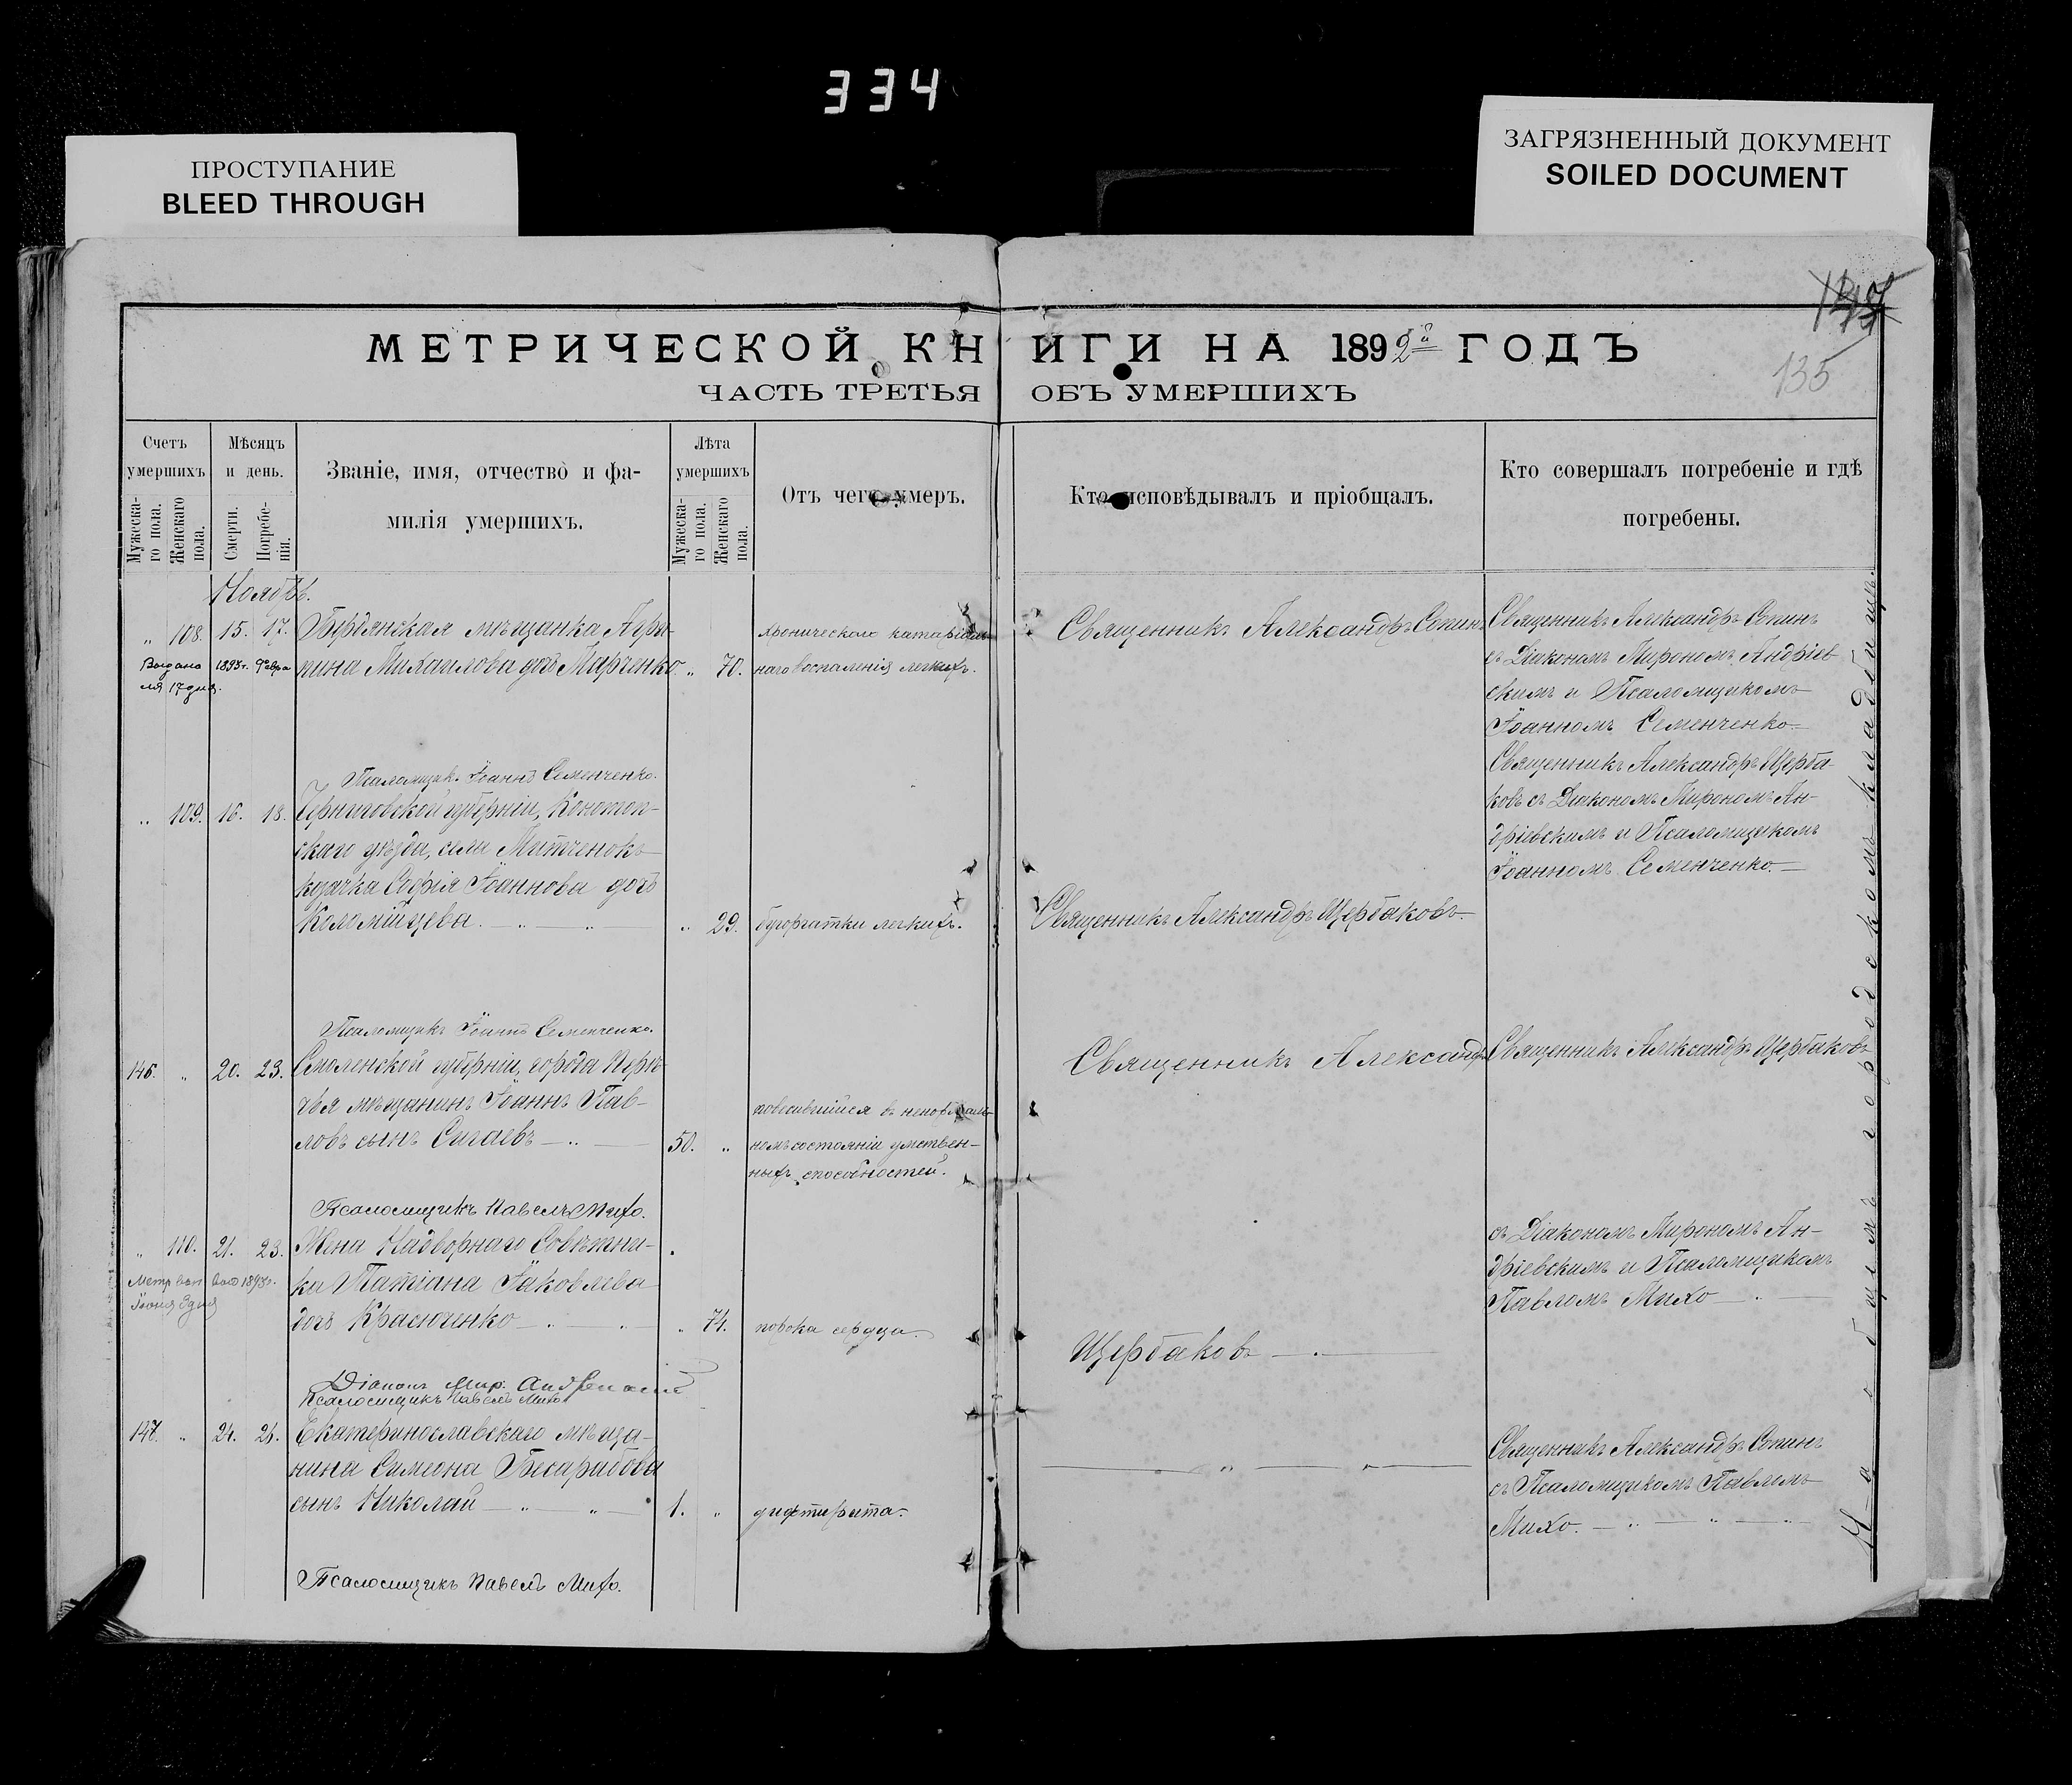 334
ПРОСТУПАНИЕ
BLEED THROUGH
ЗАГРЯЗНЕННЫЙ ДОКУМЕНТ
SOILED DOCUMENT
135
МЕТРИЧЕСКОЙ КНИГИ НА 1892й ГОДЪ
ЧАСТЬ ТРЕТЬЯ ОБЪ УМЕРШИХЪ
Счетъ умершихъ
Мужеска-го пола.
Женскаго пола.
Мѣсяцъ и день.
Смерти.
Погребе-нія.
Званіе, имя, отчество и фа-
милія умершихъ.
Лѣта умершихъ
Мужеска-го пола.
Женскаго пола.
Отъ чего умеръ.
Кто исповѣдывалъ и пріобщалъ.
Кто совершалъ погребеніе и гдѣ
погребены.
Ноябрь.
„ 108. 15. 17. Бердянская мѣщанка Агри-
пина Михаилова дочь Марченко. „ 70.
1893г. Февра
ля 17 дня.
хроническаго катарраль-
наго воспаленія легкихъ.
Священникъ Александръ Сопинъ
Священникъ Александръ Сопинъ
съ Діакономъ Мирономъ Андріев
скимъ и Псаломщикомъ
Іоанномъ Семенченко.—
Псаломщикъ Іоаннъ Семенченко.
„ 109. 16. 18. Черниговской губерніи, Конотоп-
скаго уѣзда, села Митченокъ
казачка Софія Іоаннова дочь
Коломійцева. — „ — „ — „ 29. бугорчатки легкихъ.
Священникъ Александръ Щербаковъ.
Священникъ Александръ Щерба-
ковъ съ Діакономъ Мирономъ Ан-
дріевскимъ и Псаломщикомъ
Іоанномъ Семенченко.—
Псаломщикъ Іоаннъ Семенченко.
146. „ 20. 23. Смоленской губерніи, города Порѣ-
чья мѣщанинъ Іоаннъ Пав-
ловъ сынъ Сигаевъ — „ — 50. „
повесившійся въ ненормаль-
номъ состояніи умствен-
ныхъ способностей.
Священникъ Александръ
Священникъ Александръ Щербаковъ
Псаломщикъ Павелъ Михо.
„ 110. 21. 23. Жена Надворнаго Совѣтни-
ка Татіана Іаковлева
дочь Красюченко — „ — „ 74. порока сердца.
1893г.
Іюня 3 дня
Щербаковъ — „ —
съ Діакономъ Мирономъ Ан-
дріевскимъ и Псаломщикомъ
Павломъ Михо — „ —
Діаконъ Мир. Андріевскій
Псаломщикъ Павелъ Михо
147. „ 24. 26. Екатеринославскаго мѣща-
нина Симеона
сынъ Николай — „ — „ — 1. „ дифтерита.
— „ — „ —
Священникъ Александръ Сопинъ
съ Псаломщикомъ Павломъ
Михо. — „ — „ — „
Псаломщикъ Павелъ Михо.
На общемъ городскомъ кладбищѣ.